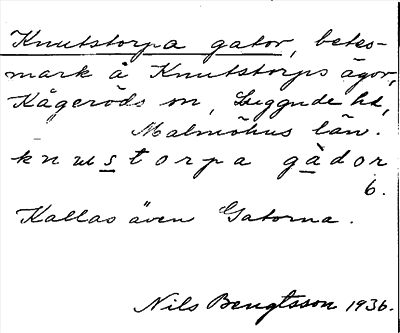 Knutstorpa gator, betes-
mark å Knutstorps ägor,
Kågeröds sn, Luggude hd,
Malmöhus län.
knustorpa gàdor
6.
Kallas även Gatorna.
Nils Bengtsson 1936.